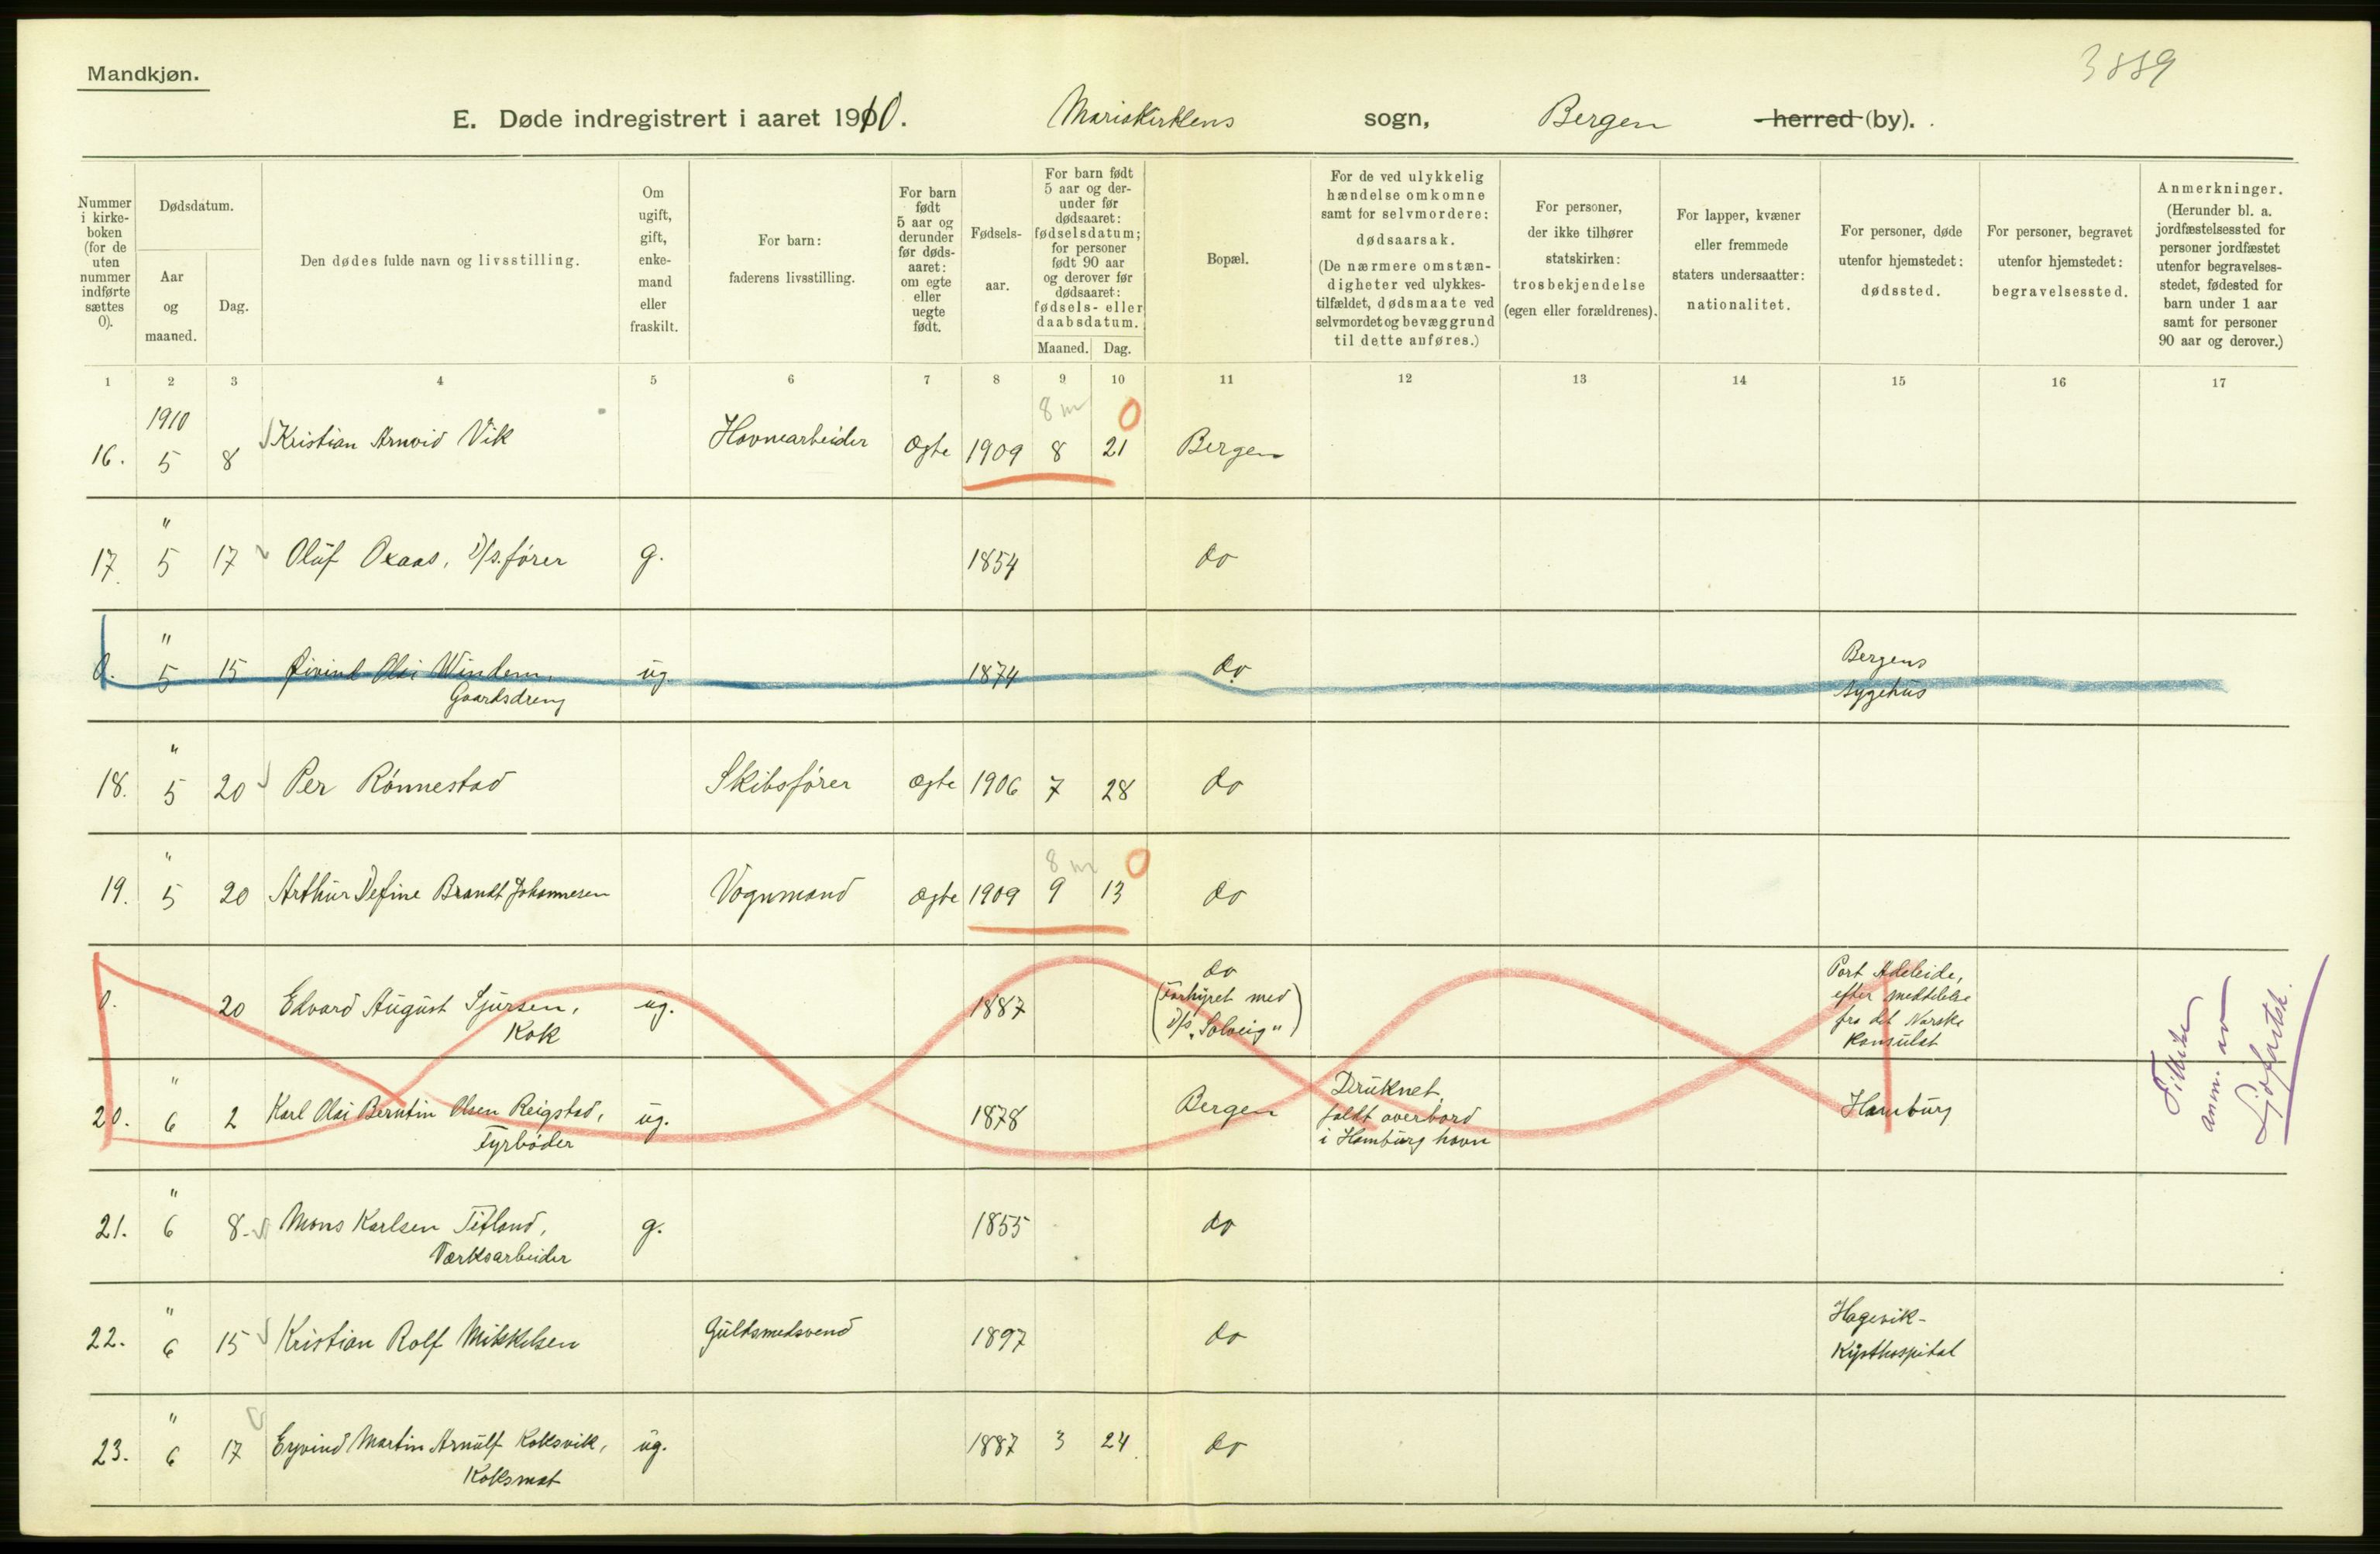 Mandkjøn.
3889
E. Døde indregistrert i aaret 1910. Mariakirkens sogn, Bergen herred (by).
Nummer i kirkeboken (for de uten nummer indførte sættes 0).
Dødsdatum.
Aar og maaned.
Dag.
Den dødes fulde navn og livsstilling.
Om ugift, gift, enkemand eller fraskilt.
For barn: faderens livsstilling.
For barn født 5 aar og derunder før dødsaaret: om egte eller uegte født.
Fødselsaar.
For barn født 5 aar og derunder før dødsaaret: fødselsdatum; for personer født 90 aar og derover før dødsaaret: fødsels- eller daabsdatum.
Maaned. Dag.
Bopæl.
For de ved ulykkelig hændelse omkomne samt for selvmordere: dødsaarsak. (De nærmere omstændigheter ved ulykkestilfældet, dødsmaate ved selvmordet og bevæggrund til dette anføres.)
For personer, der ikke tilhører statskirken: trosbekjendelse (egen eller forældrenes).
For lapper, kvæner eller fremmede staters undersaatter: nationalitet.
For personer, døde utenfor hjemstedet: dødssted.
For personer, begravet utenfor hjemstedet: begravelsessted.
Anmerkninger. (Herunder bl. a. jordfæstelsessted for personer jordfæstet utenfor begravelsesstedet, fødested for barn under 1 aar samt for personer 90 aar og derover.)
1 2 3 4 5 6 7 8 9 10 11 12 13 14 15 16 17
1910 8 m 0
16. 5 8 Kristian Arnvid Vik Havnearbeider ægte 1909 8 21 Bergen
"
17. 5 17 Oluf Oxaas, D/s. fører g. 1854 do
"
0. 5 15 Øivind Olai Windem, ug. 1874 do Bergens
Gaardsdreng sygehus
"
18. 5 20 Per Rönnestad Skibsfører ægte 1906 7 28 do
" 8 m 0
19. 5 20 Arthur Define Brandt Johannesen Vognmand ægte 1909 9 13 do
0. 20 Edvard August Sjursen, ug. 1887 do
Kok (Forhyret med
D/s. "Solveig")
Port Adeleide,
efter meddelelse
fra det Norske
Konsulat
"
20. 6 2 Karl Olai Berntin Olsen Reigstad, ug. 1878 Bergen
Fyrbøder
Druknet,
faldt overbord
i Hamburg havn
Hamburg
anm. av
Sjöfartsk.
"
21. 6 8 Mons Karlsen Titland, g. 1855 do
Værksarbeider
"
22. 6 15 Kristian Rolf Mikkelsen Guldsmedsvend 1897 do Hagevik-
Kysthospital
"
23. 6 17 Eyvind Martin Arnulf Koksvik, ug. 1887 3 24 do
Koksmat